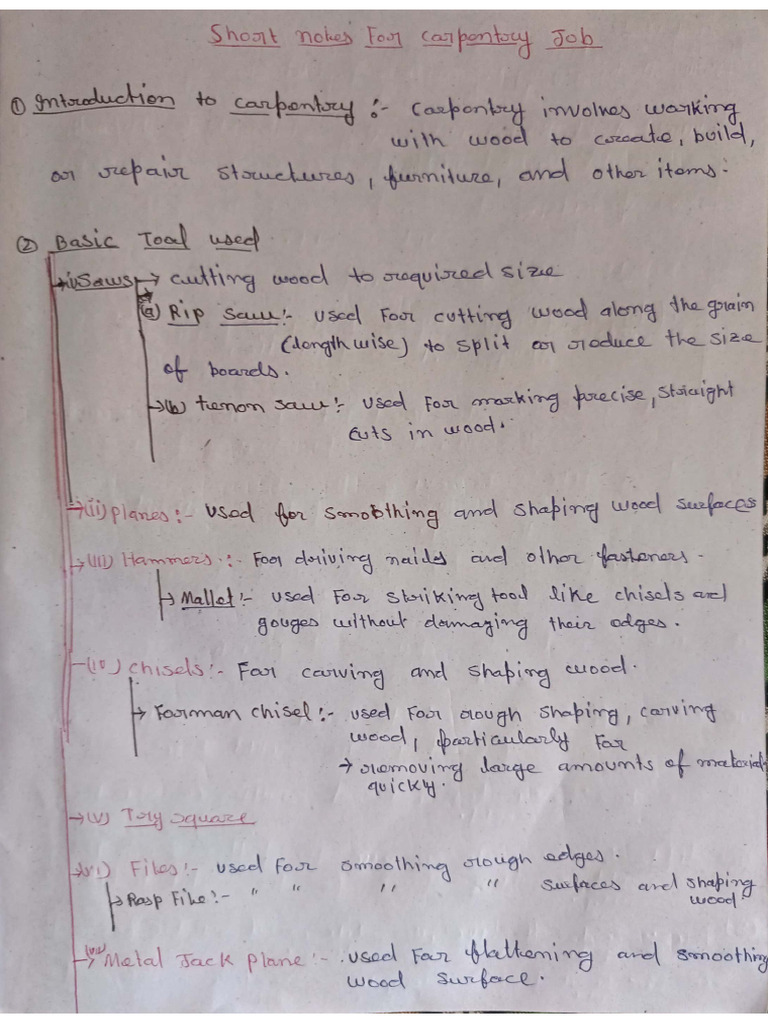 Short notes For Carpentory Job
① Introduction to carpentry :- Carpentry involves working
with wood to create, build,
or repair structures, furniture, and other items.
② Basic Tool used
→ i) Saws → cutting wood to required size
(a) Rip saw :- used For cutting wood along the grain
(lengthwise) to split or reduce the size
of boards.
→ (b) tenon saw :- used For marking precise, straight
cuts in wood.
→ (ii) planes :- used for smoothing and shaping wood surfaces
→ (iii) Hammers :- For driving nails and other fasteners.
→ Mallet :- used For striking tool like chisels and
gouges without damaging their edges.
(iv) chisels :- For carving and shaping wood.
→ Farman chisel :- used For rough shaping, carving
wood, particularly For
→ removing large amounts of material
quickly.
→ (v) Try square
(vi) Files :- used For smoothing rough edges.
→ Rasp File :- " " " " surfaces and shaping
wood
(vii) Metal Jack plane :- used For flattening and smoothing
wood surface.